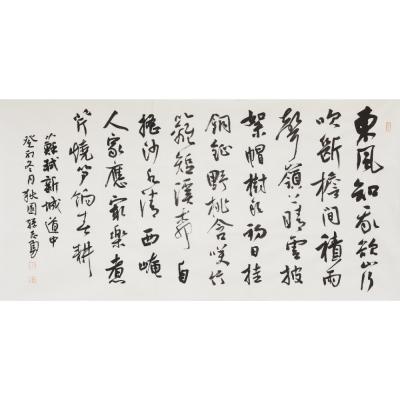 東風知我欲山行
吹斷檐間積雨
聲嶺上晴雲披
絮帽樹頭初日挂
銅鉦野桃含笑竹
籬短溪柳自
搖沙水清西崦
人家應最樂煮
芹燒笋餉春耕
蘇軾新城道中
癸卯冬月